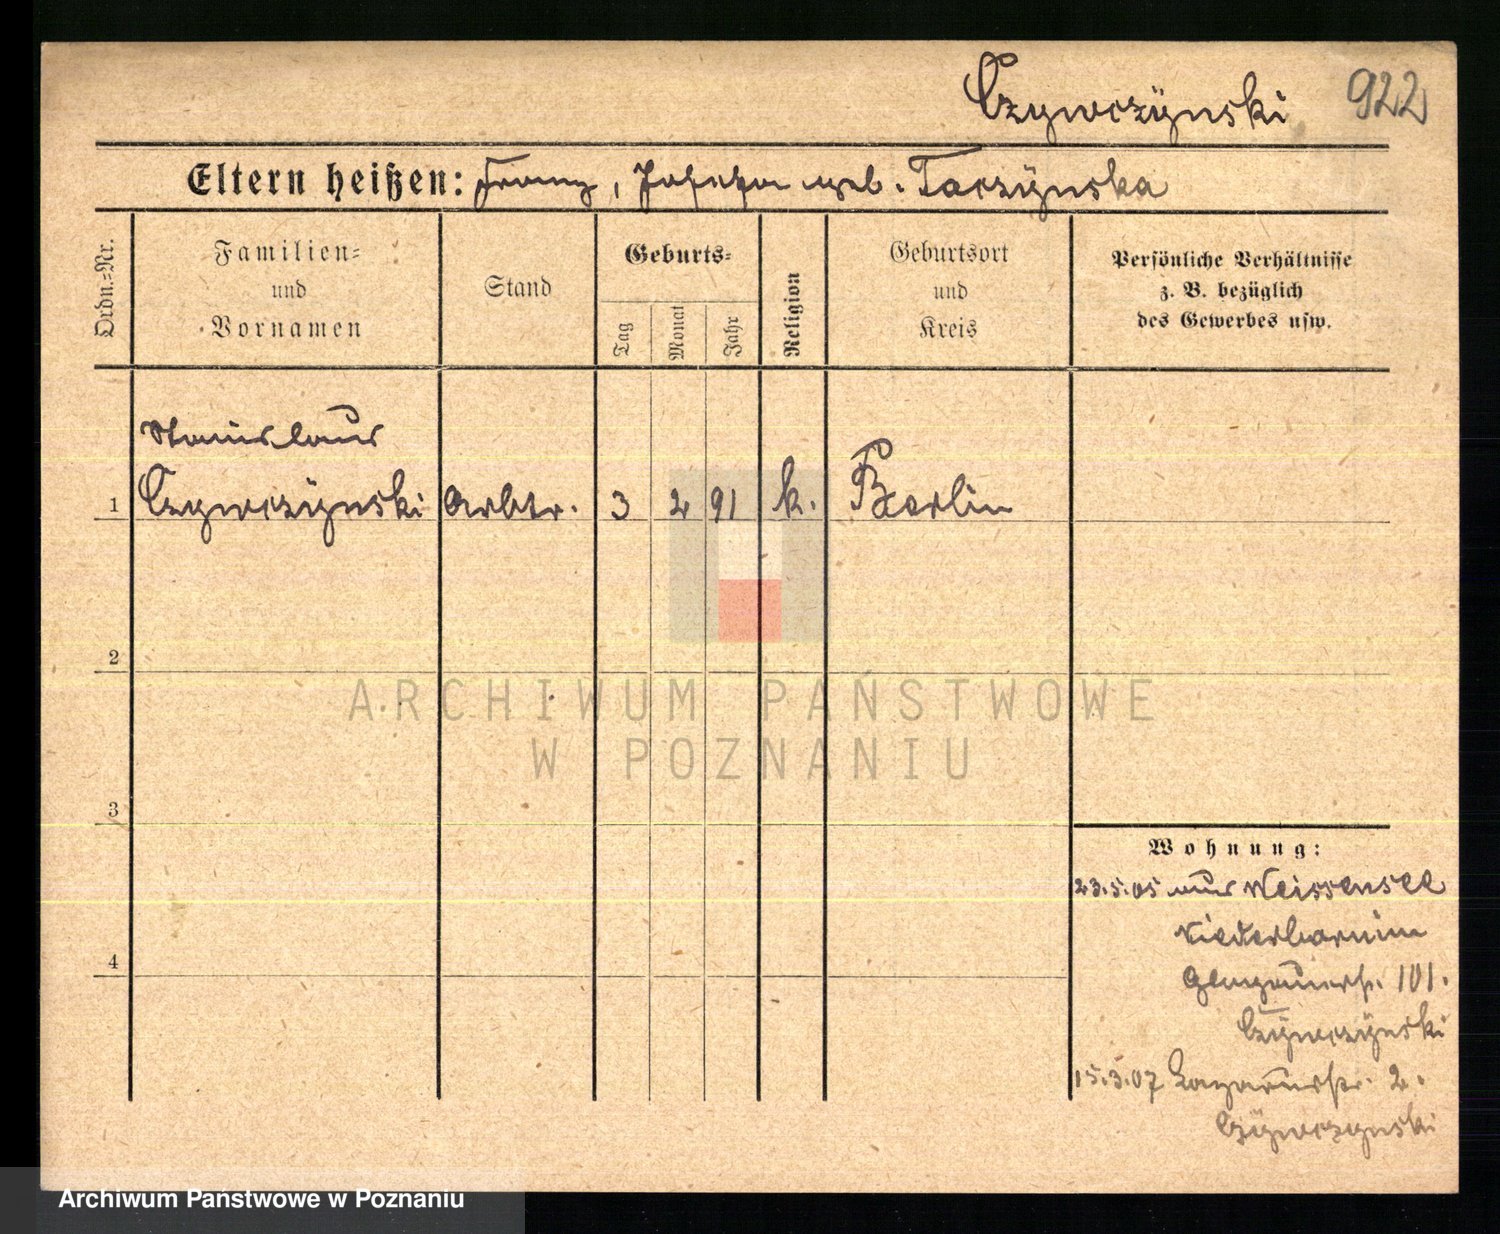 Czywczÿnski 922
Eltern heißen: Franz, Josefa geb. Taczÿnska
Ordn.-Nr.
Familien-
und
Vornamen
Stand
Geburts-
Tag
Monat
Jahr
Religion
Geburtsort
und
Kreis
Persönliche Verhältnisse
z. B. bezüglich
des Gewerbes usw.
Stanislaus
1 Czywczÿnski Arbtr. 3 2 91 k. Berlin
2
ARCHIWUM PAŃSTWOWE
W POZNANIU
3
Wohnung:
23.5.05 aus Weissensee
Niederbarnim
4
Glogauerstr. 101.
Czÿwczÿnski
15.3.07 Lazarusstr. 2.
Czÿwczynski
Archiwum Państwowe w Poznaniu